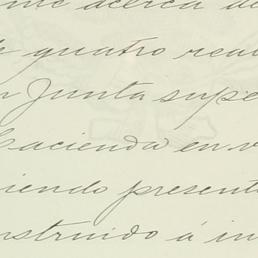 me acerca de
de quatro rea
n Junta supe
Hacienda en v
iendo present
nstruido á in